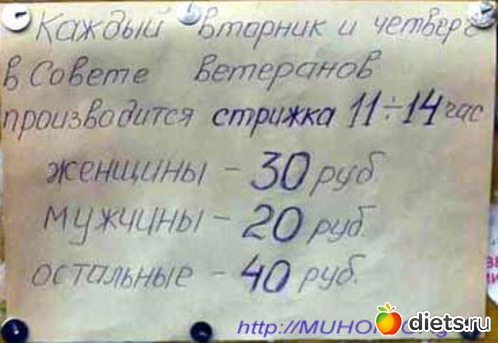 Каждый вторник и четверг
в Совете ветеранов
производится стрижка 11÷14 час
женщины - 30 руб.
мужчины - 20 руб.
остальные - 40 руб.
diets.ru